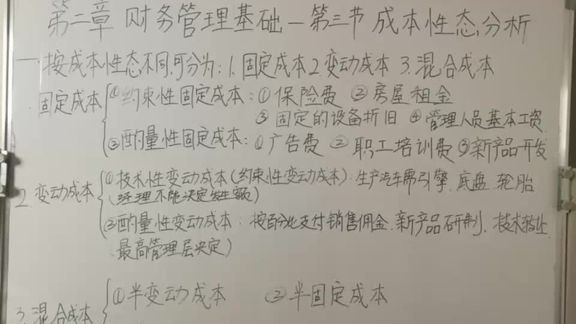 第二章 财务管理基础 — 第三节 成本性态分析
一、按成本性态不同,可分为: 1. 固定成本 2. 变动成本 3. 混合成本
1. 固定成本 ①约束性固定成本: ①保险费 ②房屋租金
③固定的设备折旧 ④管理人员基本工资
②酌量性固定成本: ①广告费 ②职工培训费 ③新产品开发
2. 变动成本 ①技术性变动成本(约束性变动成本): 生产汽车需引擎、底盘、轮胎
(经理不能决定发生额)
②酌量性变动成本: 按百分比支付销售佣金、新产品研制、技术转让
最高管理层决定)
3. 混合成本 ①半变动成本 ②半固定成本